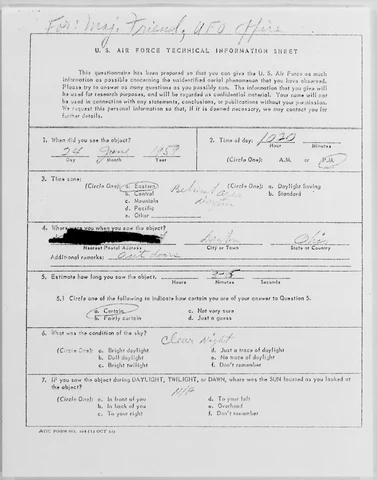 For: Maj. Friend, UFO Office
U. S. AIR FORCE TECHNICAL INFORMATION SHEET
This questionnaire has been prepared so that you can give the U. S. Air Force as much
information as possible concerning the unidentified aerial phenomenon that you have observed.
Please try to answer as many questions as you possibly can. The information that you give will
be used for research purposes, and will be regarded as confidential material. Your name will not
be used in connection with any statements, conclusions, or publications without your permission.
We request this personal information so that, if it is deemed necessary, we may contact you for
further details.
1. When did you see the object? 2. Time of day: 1030
Hour Minutes
24 June 1959
Day Month Year (Circle One): A.M. or P.M.
3. Time zone:
(Circle One): a. Eastern a. Daylight Saving
b. Central b. Standard
c. Mountain
d. Pacific
e. Other
4. Where were you when you saw the object?
Nearest Postal Address City or Town State or Country
Additional remarks: outdoors
5. Estimate how long you saw the object. 3-5
Hours Minutes Seconds
5.1 Circle one of the following to indicate how certain you are of your answer to Question 5.
a. Certain c. Not very sure
b. Fairly certain d. Just a guess
6. What was the condition of the sky?
Clear Night
(Circle One): a. Bright daylight d. Just a trace of daylight
b. Dull daylight e. No trace of daylight
c. Bright twilight f. Don't remember
7. IF you saw the object during DAYLIGHT, TWILIGHT, or DAWN, where was the SUN located as you looked at
the object? N/A
(Circle One): a. In front of you d. To your left
b. In back of you e. Overhead
c. To your right f. Don't remember